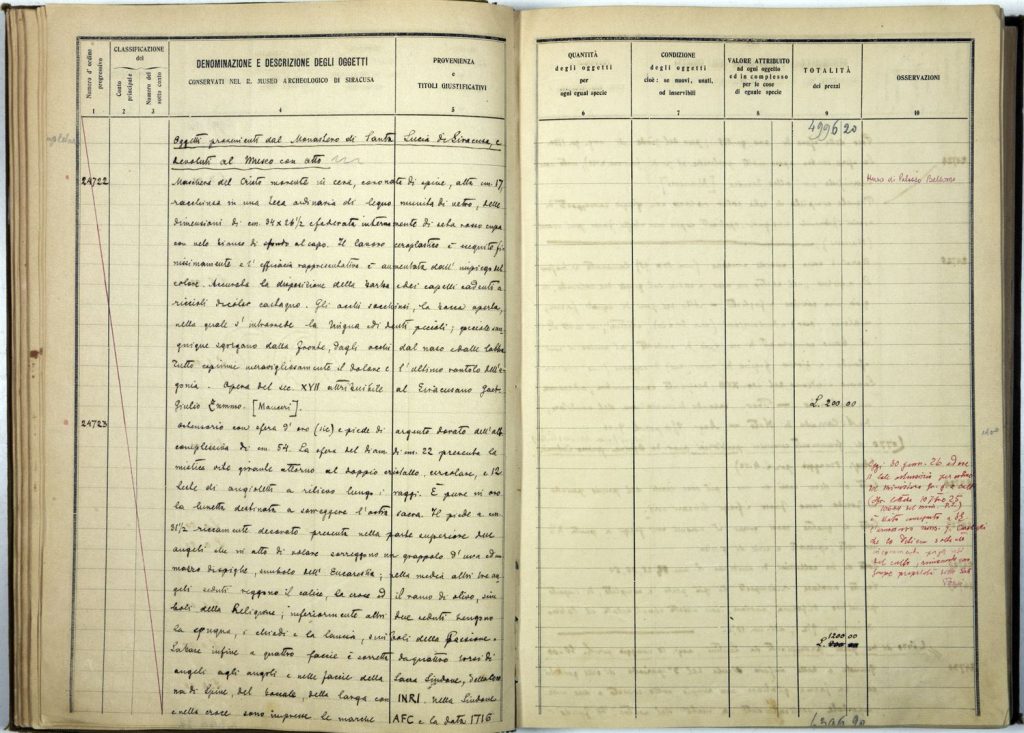 Numero d'ordine progressivo
CLASSIFICAZIONE del
Conto principale
Numero del sotto conto
DENOMINAZIONE E DESCRIZIONE DEGLI OGGETTI
CONSERVATI NEL R. MUSEO ARCHEOLOGICO DI SIRACUSA
PROVENIENZA
e
TITOLI GIUSTIFICATIVI
1 2 3 4 5
Oggetti provenienti dal Monastero di Santa Lucia di Siracusa, e
devoluti al Museo con atto
24722 Maschera del Cristo morente in cera, coronata di spine, alta cm. 17,
racchiusa in una teca ordinaria di legno munita di vetro, delle
dimensioni di cm. 34 x 26 1/2 e foderata internamente di seta rosso cupa
con velo bianco di sfondo al capo. Il lavoro ceroplastico è eseguito fi
nissimamente e l'efficacia rappresentativa è aumentata dall'impiego del
colore. Accurata la disposizione della barba e dei capelli cadenti a
riccioli di color castagno. Gli occhi socchiusi, la bocca aperta,
nella quale s'intravvede la lingua ed i denti piccoli; gocciole san
guigne sgorgano dalla fronte, dagli occhi dal naso e dalle labbra
tutto esprime meravigliosamente il dolore e l'ultimo rantolo dell'a
gonia. Opera del sec. XVII attribuibile al Siracusano Gaet.
Giulio Zummo. [Mauceri].
24723 Ostensorio con sfera d'oro (sic) e piede di argento dorato dell'alt.
complessiva di cm. 54. La sfera del diam. di cm. 22 presenta la
mistica orbe girante attorno al doppio cristallo, circolare, e 12
teste di angioletti a rilievo lungo i raggi. È pure in oro
la lunetta destinata a sorreggere l'ostia sacra. Il piede a cm.
31 1/2 riccamente decorato presenta nella parte superiore due
angeli che in atto di volare sorreggono un grappolo d'uva ed un
mazzo di spighe, simbolo dell'Eucarestia; nella media altri tre an
geli seduti reggono il calice, la croce ed il ramo di olivo, sim
boli della Religione; inferiormente altri due seduti tengono
la spugna, i chiodi e la lancia, simboli della Passione.
La base infine a quattro faccie è sorretta da quattro torsi di
angeli agli angoli e nelle faccie della Sacra Sindone, della coro
na di spine, del della targa con INRI. Nella Sindone
e nella croce sono impresse le marche AFC e la data 1716
QUANTITÀ
degli oggetti
per
ogni egual specie
CONDIZIONE
degli oggetti
cioè: se nuovi, usati,
od inservibili
VALORE ATTRIBUITO
ad ogni oggetto
ed in complesso
per le cose
di eguale specie
TOTALITÀ
dei prezzi
OSSERVAZIONI
6 7 8 9 10
4996 20
Museo di Palazzo Bellomo
L. 200 00
Oggi 30 26
1200.00
L.
4396 20